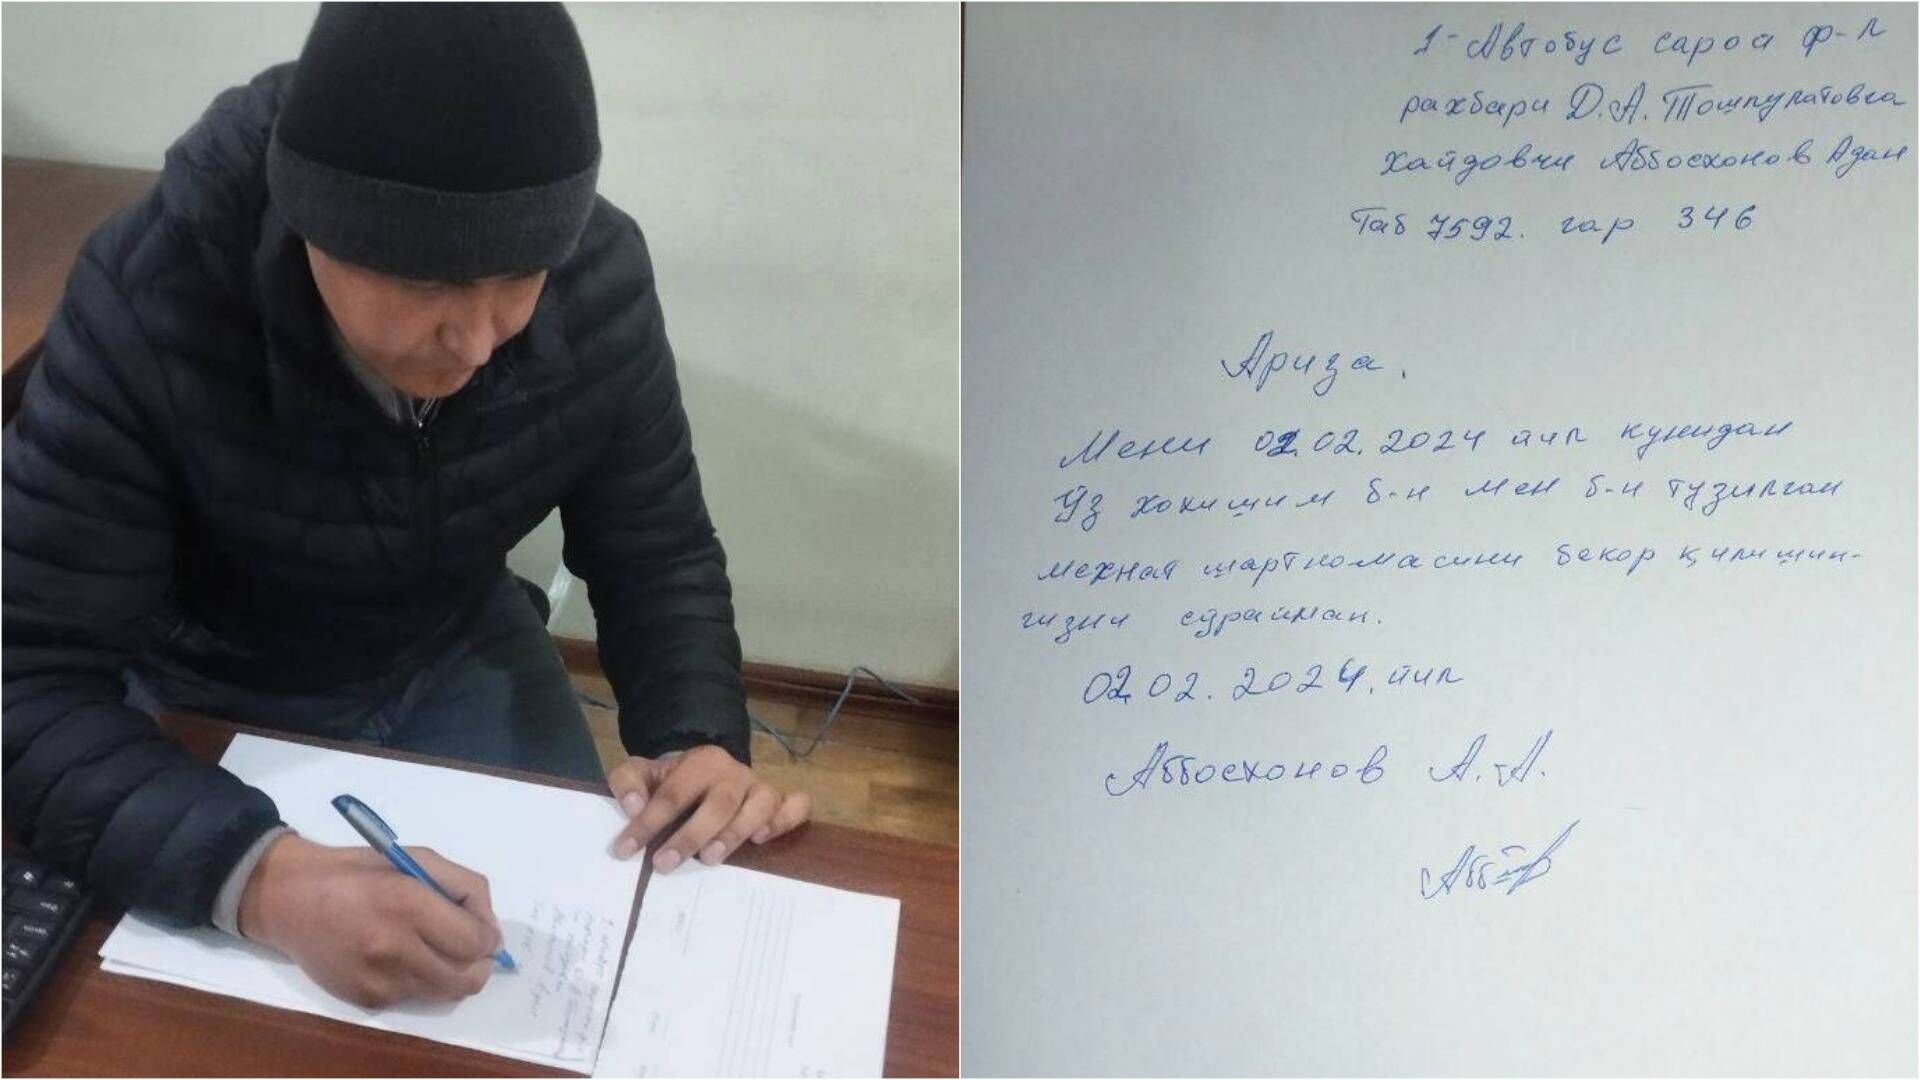 1-Автобус сарой ф-л
рахбари Д.А. Тошпулатовга
хайдовчи Аббосхонов Адхан
Таб 7592. гар 346
Ариза.
Мени 02.02.2024 йил кунидан
ўз хохишим б-н мен б-н тузилган
мехнат шартномасини бекор қилишин-
гизни сўрайман.
02.02.2024. йил
Аббосхонов А.А.